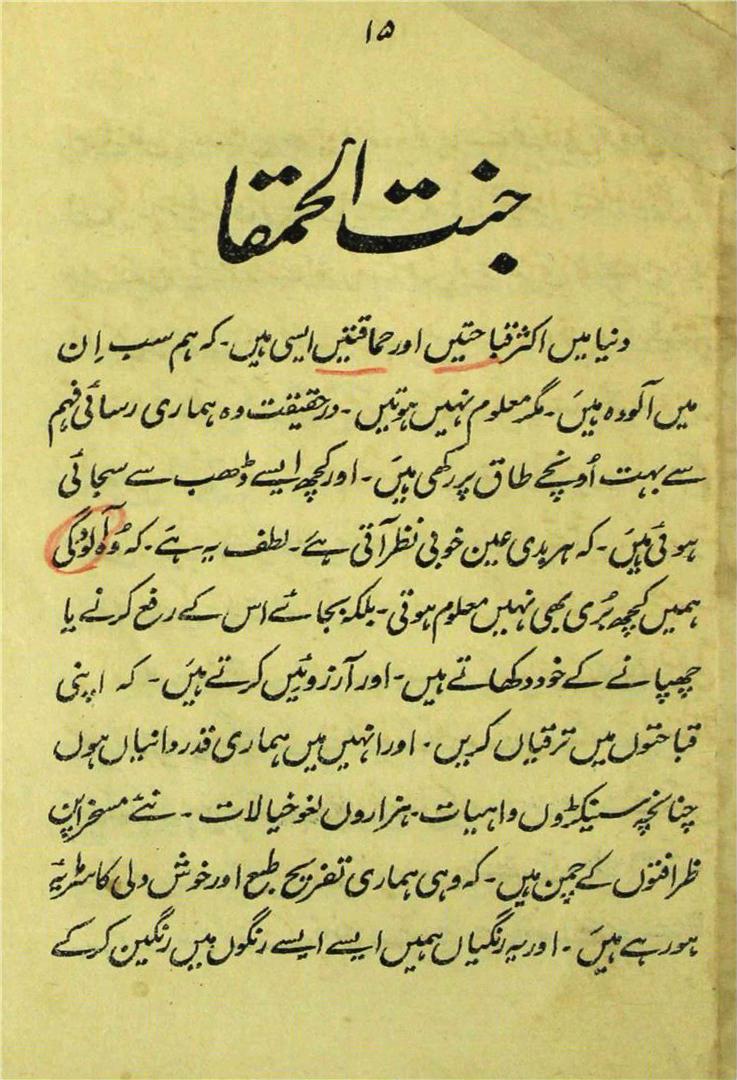 ۱۵
جنت الحمقا
دنیا میں اکثر قباحتیں اور حماقتیں ایسی ہیں۔ کہ ہم سب اِن
میں آلودہ ہیں۔ مگر معلوم نہیں ہوتیں۔ درحقیقت وہ ہماری رسائی فہم
سے بہت اُونچے طاق پر رکھی ہیں۔ اور کچھ ایسے ڈھب سے سجائی
ہوئی ہیں۔ کہ ہر بدی عین خوبی نظر آتی ہے۔ لطف یہ ہے۔ کہ وُہ آلودگی
ہمیں کچھ بُری بھی نہیں معلوم ہوتی۔ بلکہ بجائے اس کے رفع کرنے یا
چھپانے کے خود دکھاتے ہیں۔ اور آرزوئیں کرتے ہیں۔ کہ اپنی
قباحتوں میں ترقیاں کریں۔ اور انہیں میں ہماری قدردانیاں ہوں
چنانچہ سینکڑوں واہیات۔ ہزاروں لغو خیالات۔ نئے مسخراپن
ظرافتوں کے چمن ہیں۔ کہ وہی ہماری تفریح طبع اور خوش دلی کا سرمایہ
ہو رہے ہیں۔ اور یہ رنگیاں ہمیں ایسے ایسے رنگوں میں رنگین کر کے